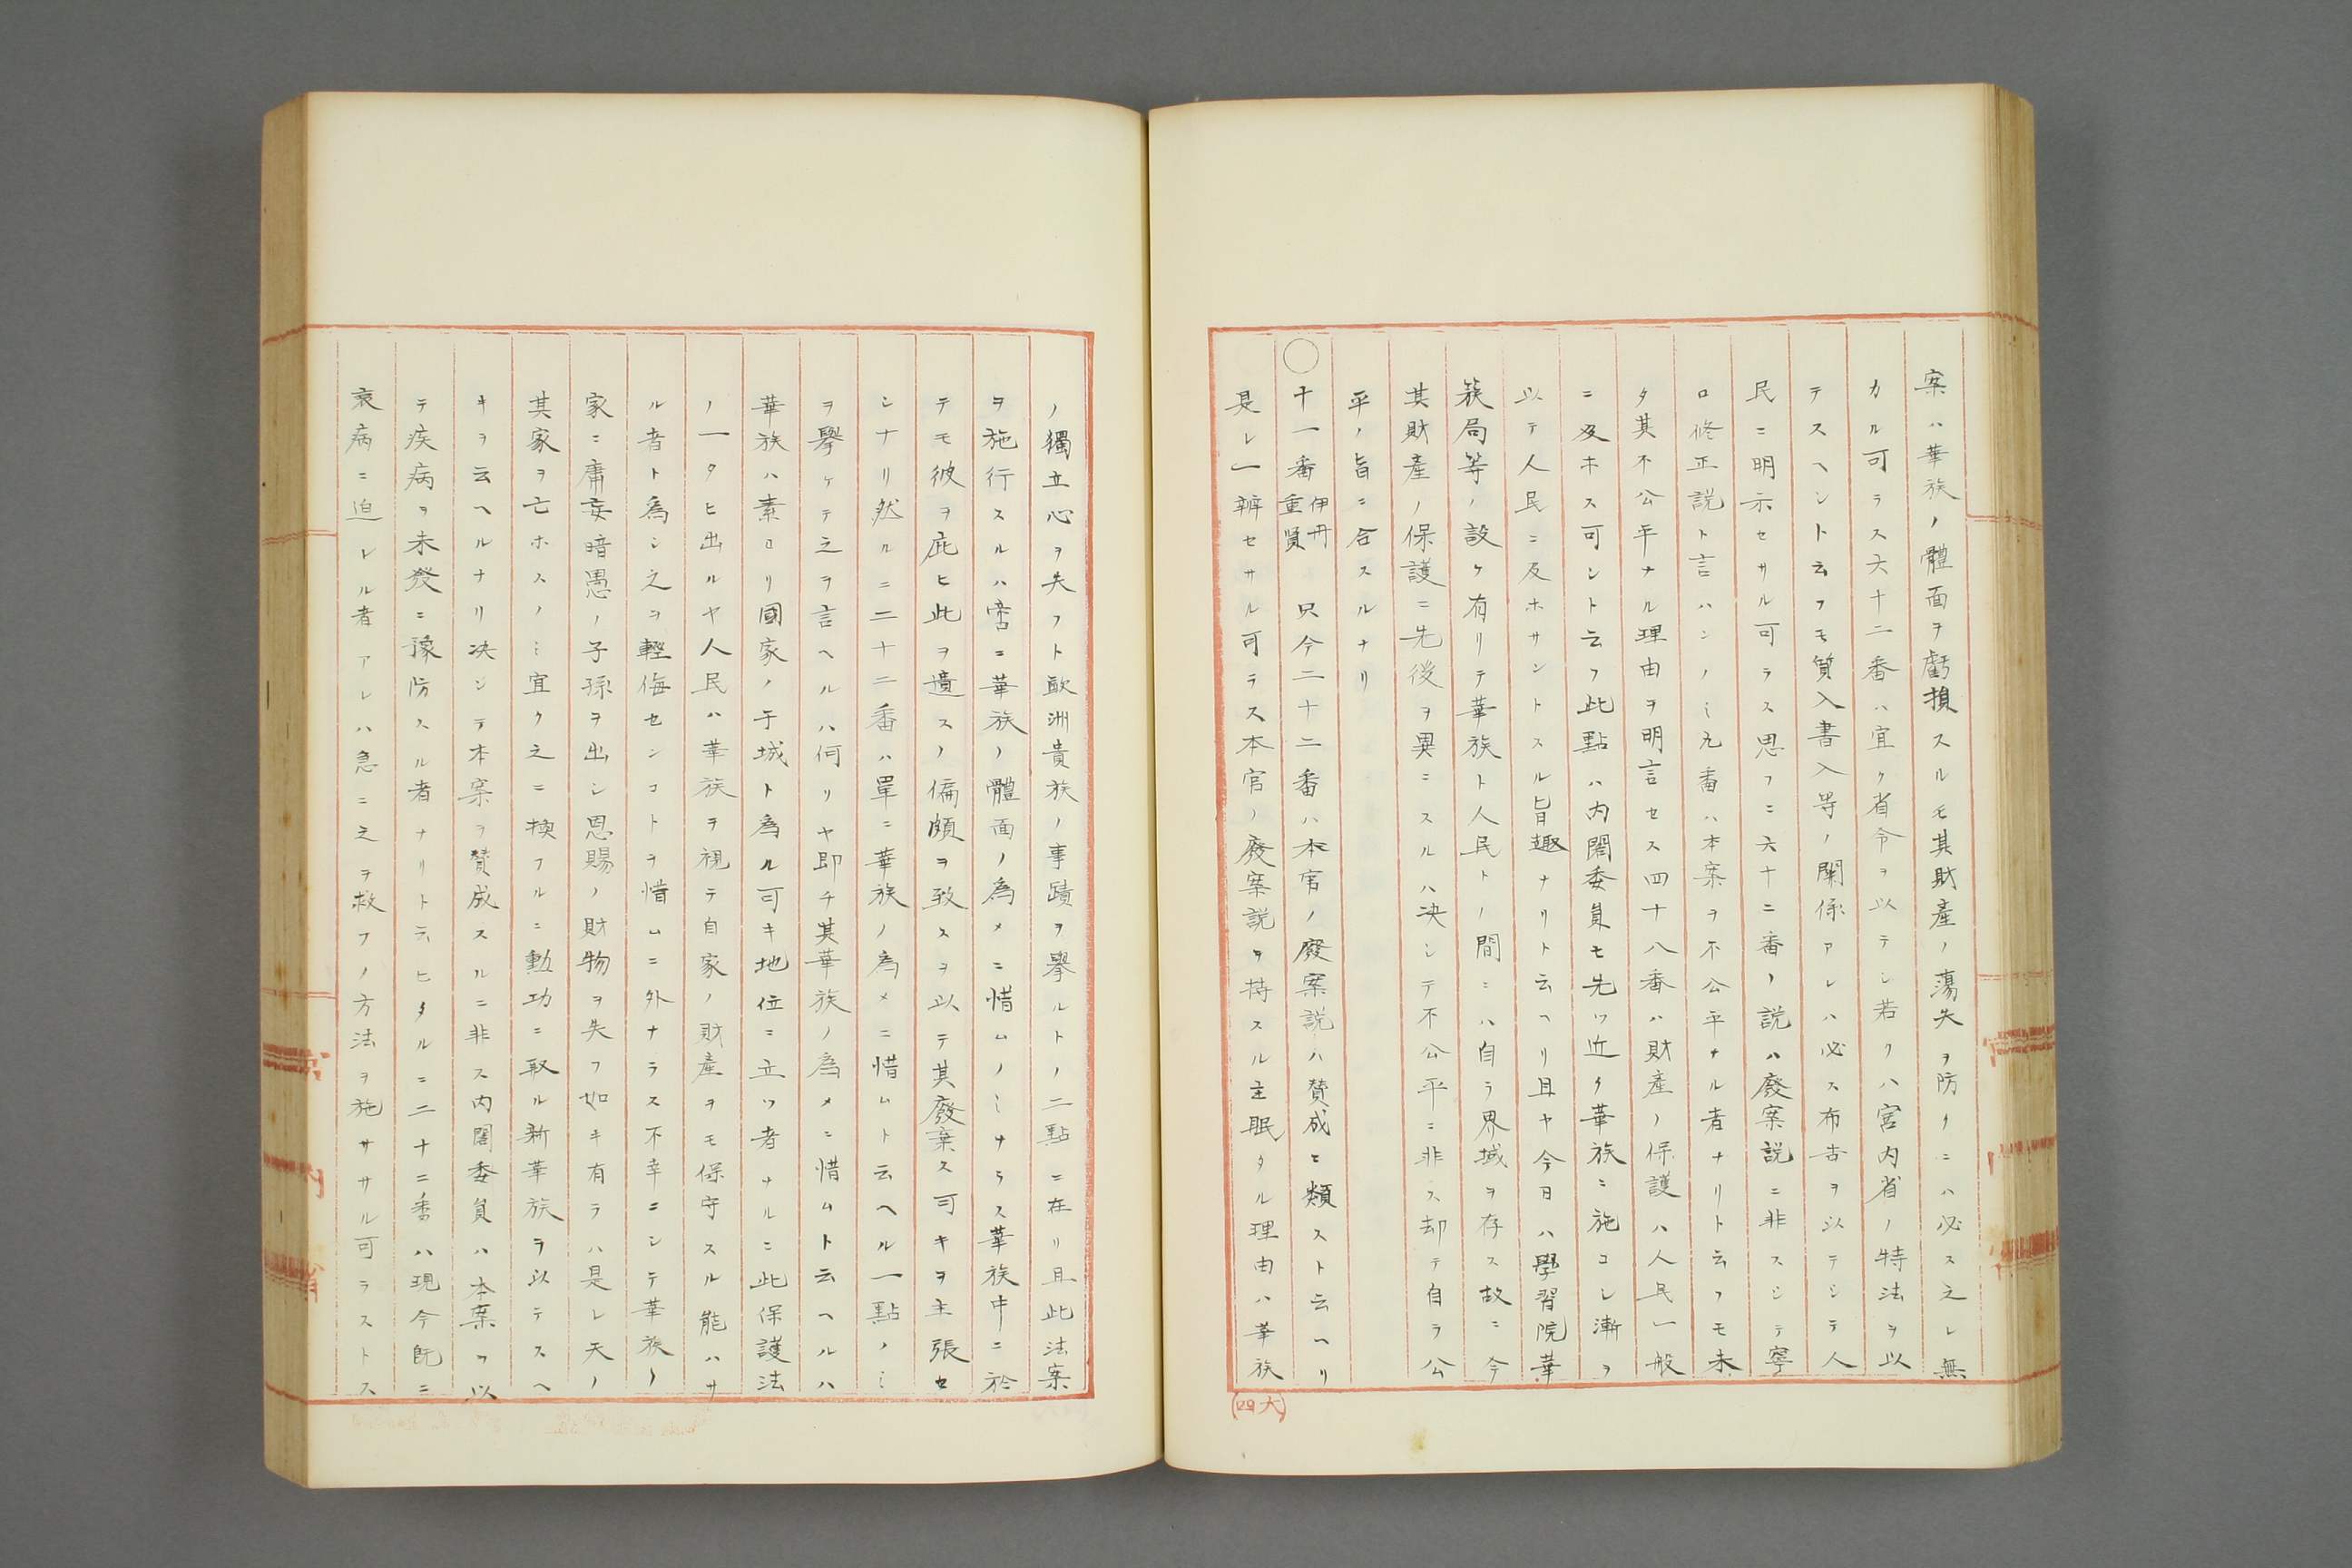 案ハ華族ノ體面ヲ虧損スルモ其財產ノ蕩失ヲ防クニハ必ス之レ無
カル可ラス六十二番ハ宜ク省令ヲ以テシ若クハ宮内省ノ特法ヲ以
テスヘシト云フモ質入書入等ノ關係アレハ必ス布告ヲ以テシテ人
民ニ明示セサル可ラス思フニ六十二番ノ說ハ廢案說ニ非スシテ寧
ロ修正說ト言ハンノミ九番ハ本案ヲ不公平ナル者ナリト云フモ未
タ其不公平ナル理由ヲ明言セス四十八番ハ財產ノ保護ハ人民一般
ニ及ホス可シト云フ此點ハ内閣委員モ先ツ近ク華族ニ施コシ漸ヲ
以テ人民ニ及ホサントスル旨趣ナリト云ヘリ且ヤ今日ハ學習院華
族局等ノ設ケ有リテ華族ト人民トノ間ニハ自ラ界域ヲ存ス故ニ今
其財產ノ保護ニ先後ヲ異ニスルハ决シテ不公平ニ非ス却テ自ラ公
平ノ旨ニ合スルナリ
○十一番 伊丹重賢 只今二十二番ハ本官ノ廢案說ハ賛成ニ類スト云ヘリ
是レ一辨セサル可ラス本官ノ廢案說ヲ持スル主眠タル理由ハ華族
(四大)
ノ獨立心ヲ失フト歐洲貴族ノ事蹟ヲ擧ルトノ二點ニ在リ且此法案
ヲ施行スルハ啻ニ華族ノ體面ノ為メニ惜ムノミナラス華族中ニ於
テモ彼ヲ庇ヒ此ヲ遺スノ偏頗ヲ致スヲ以テ其廢棄ス可キヲ主張セ
シナリ然ルニ二十二番ハ單ニ華族ノ為メニ惜ムト云ヘル一點ノミ
ヲ擧ケテ之ヲ言ヘルハ何リヤ即チ其華族ノ為メニ惜ムト云ヘルハ
華族ハ素ロリ國家ノ干城ト為ル可キ地位ニ立ツ者ナルニ此保護法
ノ一タヒ出ルヤ人民ハ華族ヲ視テ自家ノ財產ヲモ保守スル能ハサ
ル者ト為シ之ヲ輕侮センコトヲ惜ムニ外ナラス不幸ニシテ華族ノ
家ニ庸妄暗愚ノ子孫ヲ出シ恩賜ノ財物ヲ失フ如キ有ラハ是レ天ノ
其家ヲ亡ホスノミ宜ク之ニ換フルニ勳功ニ取ル新華族ヲ以テスヘ
キヲ云ヘルナリ决シテ本案ヲ賛成スルニ非ス内閣委員ハ本案ヲ以
テ疾病ヲ未發ニ豫防スル者ナリト云ヒタルニ二十二番ハ現今既ニ
衰病ニ迫レル者アレハ急ニ之ヲ救フノ方法ヲ施サヽル可ラストス